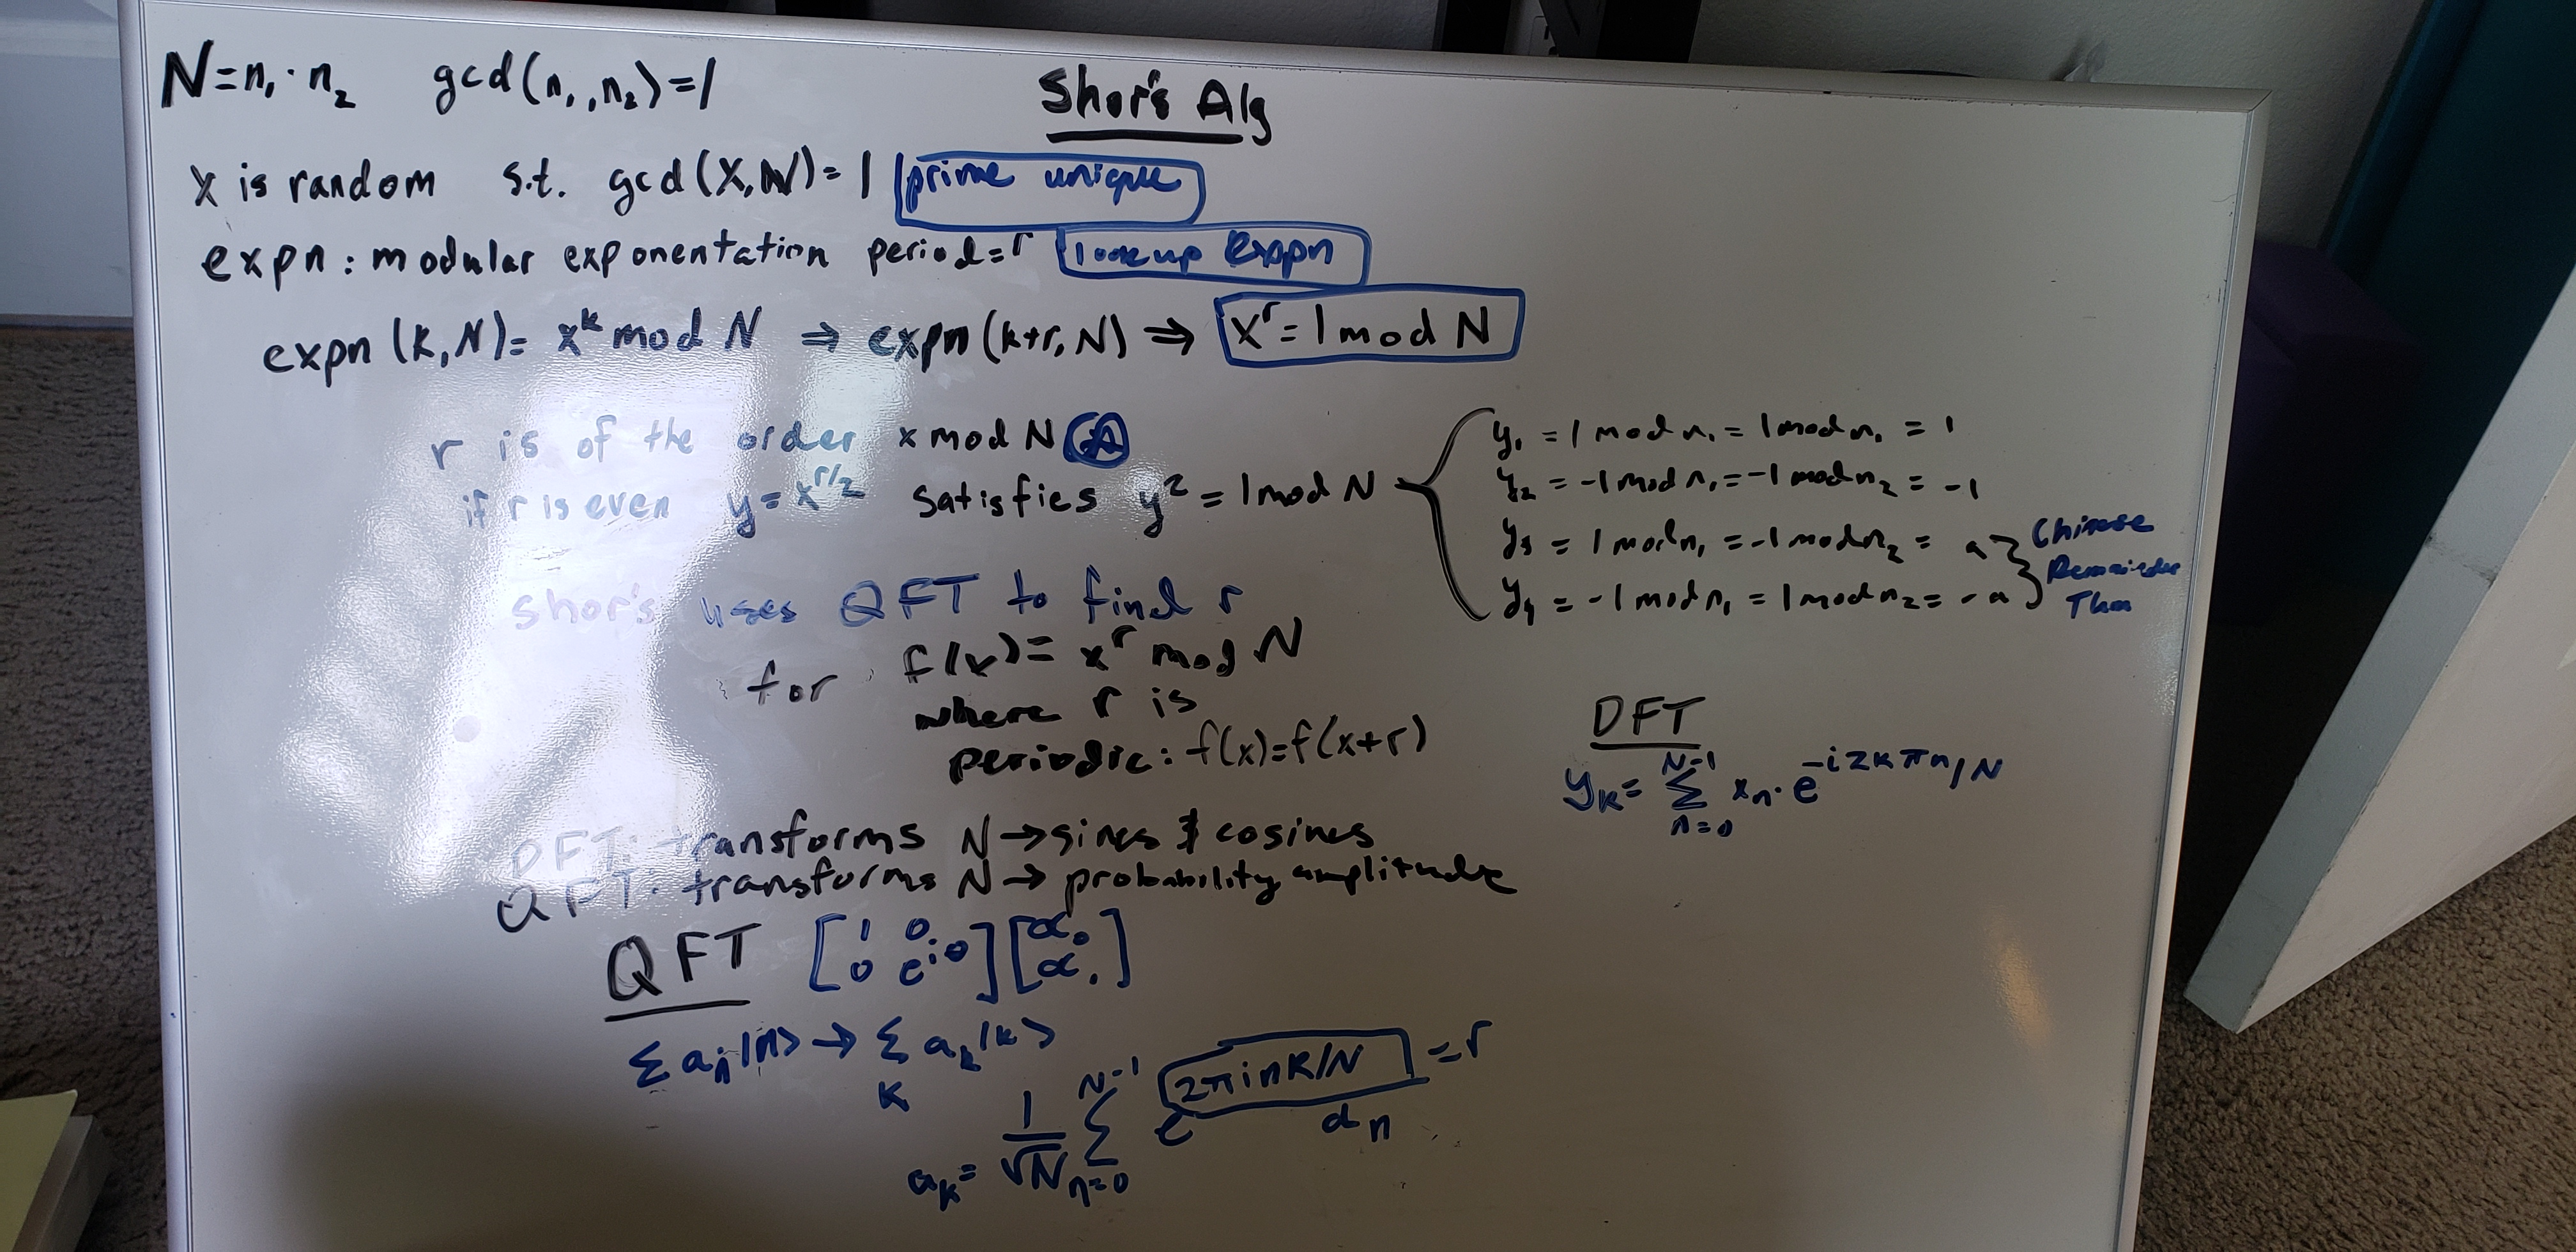 N=n₁·n₂ gcd(n₁,n₂)=1
Shor's Alg
x is random s.t. gcd(X,N)=1 prime unique
expn: modular exponentation period=r lookup expn
expn(k,N)= x^k mod N ⇒ expn(k+r,N) ⇒ x^r=1mod N
r is of the order x mod N A
if r is even y=x^(r/2) satisfies y²=1mod N
y₁ = 1 mod n₁ = 1 mod n₁ = 1
y₂ = -1 mod n₁ = -1 mod n₂ = -1
y₃ = 1 mod n₁ = -1 mod n₂ = a
y₄ = -1 mod n₁ = 1 mod n₂ = -a
Chinese
Remainder
Thm
Shor's uses QFT to find r
for f(x)= x^r mod N
where r is
periodic: f(x)=f(x+r)
DFT
y_k= Σ_(n=0)^(N-1) x_n·e^(-i2kπn/N)
DFT: transforms N→sines & cosines
QFT: transforms N→ probability amplitude
QFT [1 0; 0 e^(iθ)][α₀; α₁]
Σ a_n|n> → Σ_k a_k|k>
a_k= 1/√N Σ_(n=0)^(N-1) e^(2πink/N) α_n =r